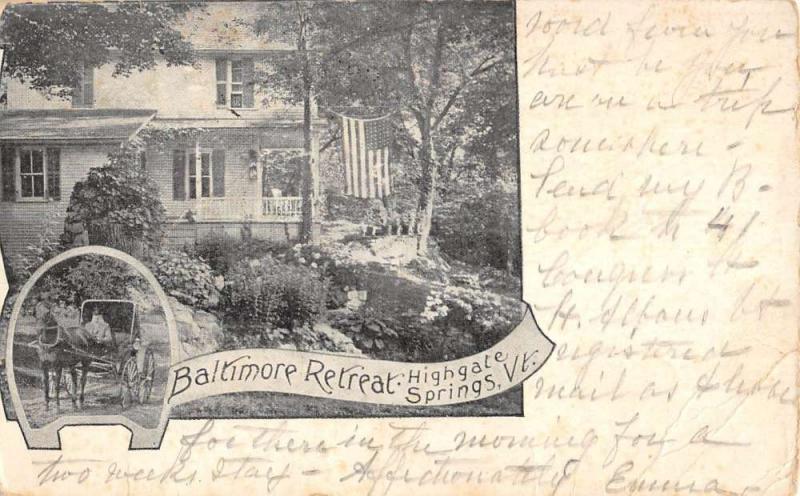 word from you
must be you
are on a trip
somewhere -
Send my B-
book to 41
Congress St
St. Albans Vt
registered
mail as I leave
Baltimore Retreat. Highgate
Springs, Vt.
for there in the morning for a
two weeks stay - Affectionately Emma